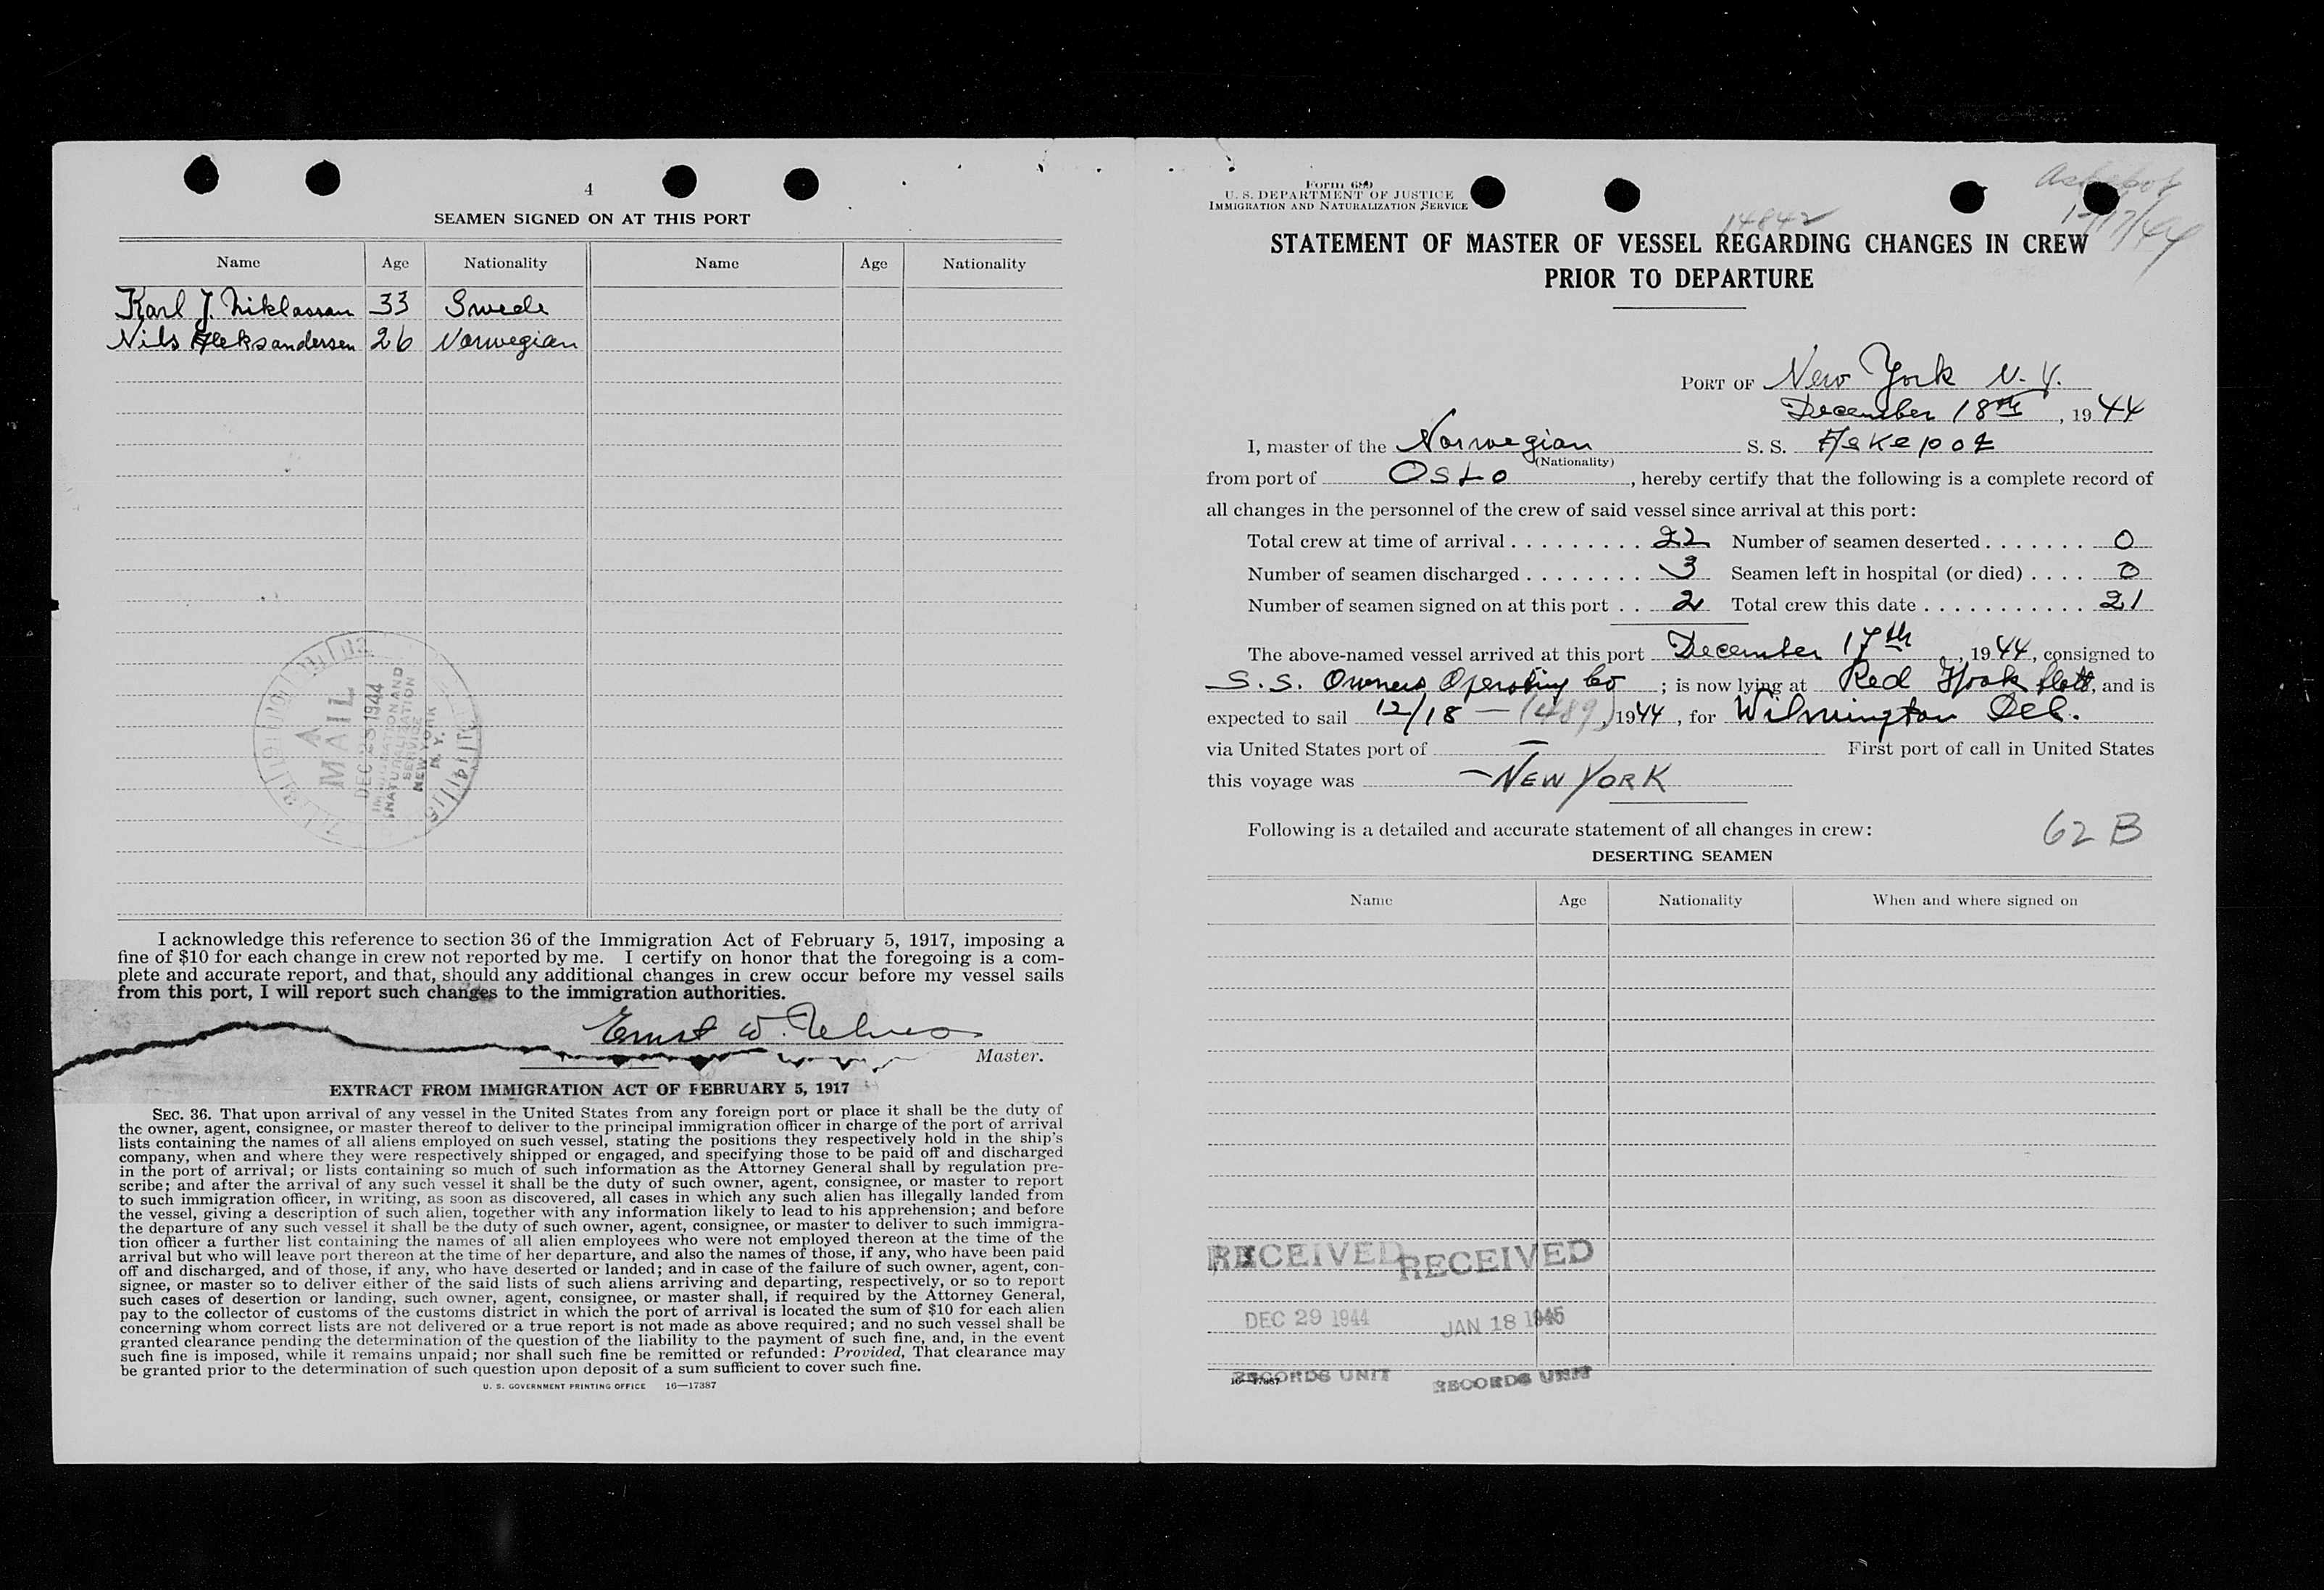 4
SEAMEN SIGNED ON AT THIS PORT
Name Age Nationality Name Age Nationality
Karl J. Niklassan 33 Swede
Nils Aleksandersen 26 Norwegian
MAIL
DEC 28 1944
IMMIGRATION AND
NATURALIZATION
SERVICE
NEW YORK
N. Y.
I acknowledge this reference to section 36 of the Immigration Act of February 5, 1917, imposing a
fine of $10 for each change in crew not reported by me. I certify on honor that the foregoing is a com-
plete and accurate report, and that, should any additional changes in crew occur before my vessel sails
from this port, I will report such changes to the immigration authorities.
Ernst W.
Master.
EXTRACT FROM IMMIGRATION ACT OF FEBRUARY 5, 1917
SEC. 36. That upon arrival of any vessel in the United States from any foreign port or place it shall be the duty of
the owner, agent, consignee, or master thereof to deliver to the principal immigration officer in charge of the port of arrival
lists containing the names of all aliens employed on such vessel, stating the positions they respectively hold in the ship's
company, when and where they were respectively shipped or engaged, and specifying those to be paid off and discharged
in the port of arrival; or lists containing so much of such information as the Attorney General shall by regulation pre-
scribe; and after the arrival of any such vessel it shall be the duty of such owner, agent, consignee, or master to report
to such immigration officer, in writing, as soon as discovered, all cases in which any such alien has illegally landed from
the vessel, giving a description of such alien, together with any information likely to lead to his apprehension; and before
the departure of any such vessel it shall be the duty of such owner, agent, consignee, or master to deliver to such immigra-
tion officer a further list containing the names of all alien employees who were not employed thereon at the time of the
arrival but who will leave port thereon at the time of her departure, and also the names of those, if any, who have been paid
off and discharged, and of those, if any, who have deserted or landed; and in case of the failure of such owner, agent, con-
signee, or master so to deliver either of the said lists of such aliens arriving and departing, respectively, or so to report
such cases of desertion or landing, such owner, agent, consignee, or master shall, if required by the Attorney General,
pay to the collector of customs of the customs district in which the port of arrival is located the sum of $10 for each alien
concerning whom correct lists are not delivered or a true report is not made as above required; and no such vessel shall be
granted clearance pending the determination of the question of the liability to the payment of such fine, and, in the event
such fine is imposed, while it remains unpaid; nor shall such fine be remitted or refunded: Provided, That clearance may
be granted prior to the determination of such question upon deposit of a sum sufficient to cover such fine.
U. S. GOVERNMENT PRINTING OFFICE 16—17387
Form 689
U. S. DEPARTMENT OF JUSTICE
IMMIGRATION AND NATURALIZATION SERVICE
14842
12/17/44
STATEMENT OF MASTER OF VESSEL REGARDING CHANGES IN CREW
PRIOR TO DEPARTURE
PORT OF New York N. Y.
December 18th, 1944
I, master of the Norwegian S. S. Askepot
(Nationality)
from port of OSLO, hereby certify that the following is a complete record of
all changes in the personnel of the crew of said vessel since arrival at this port:
Total crew at time of arrival . . . . . . . . . 22 Number of seamen deserted . . . . . . . 0
Number of seamen discharged . . . . . . . . 3 Seamen left in hospital (or died) . . . . 0
Number of seamen signed on at this port . . 2 Total crew this date . . . . . . . . . . . . 21
The above-named vessel arrived at this port December 17th, 1944, consigned to
S. S. Owners Operating Co; is now lying at Red Hook flats, and is
expected to sail 12/18 — (489), 1944, for Wilmington Del.
via United States port of — First port of call in United States
this voyage was — NEW YORK
Following is a detailed and accurate statement of all changes in crew:
62 B
DESERTING SEAMEN
Name Age Nationality When and where signed on
RECEIVED RECEIVED
DEC 29 1944 JAN 18 1945
RECORDS UNIT RECORDS UNIT
16—17387